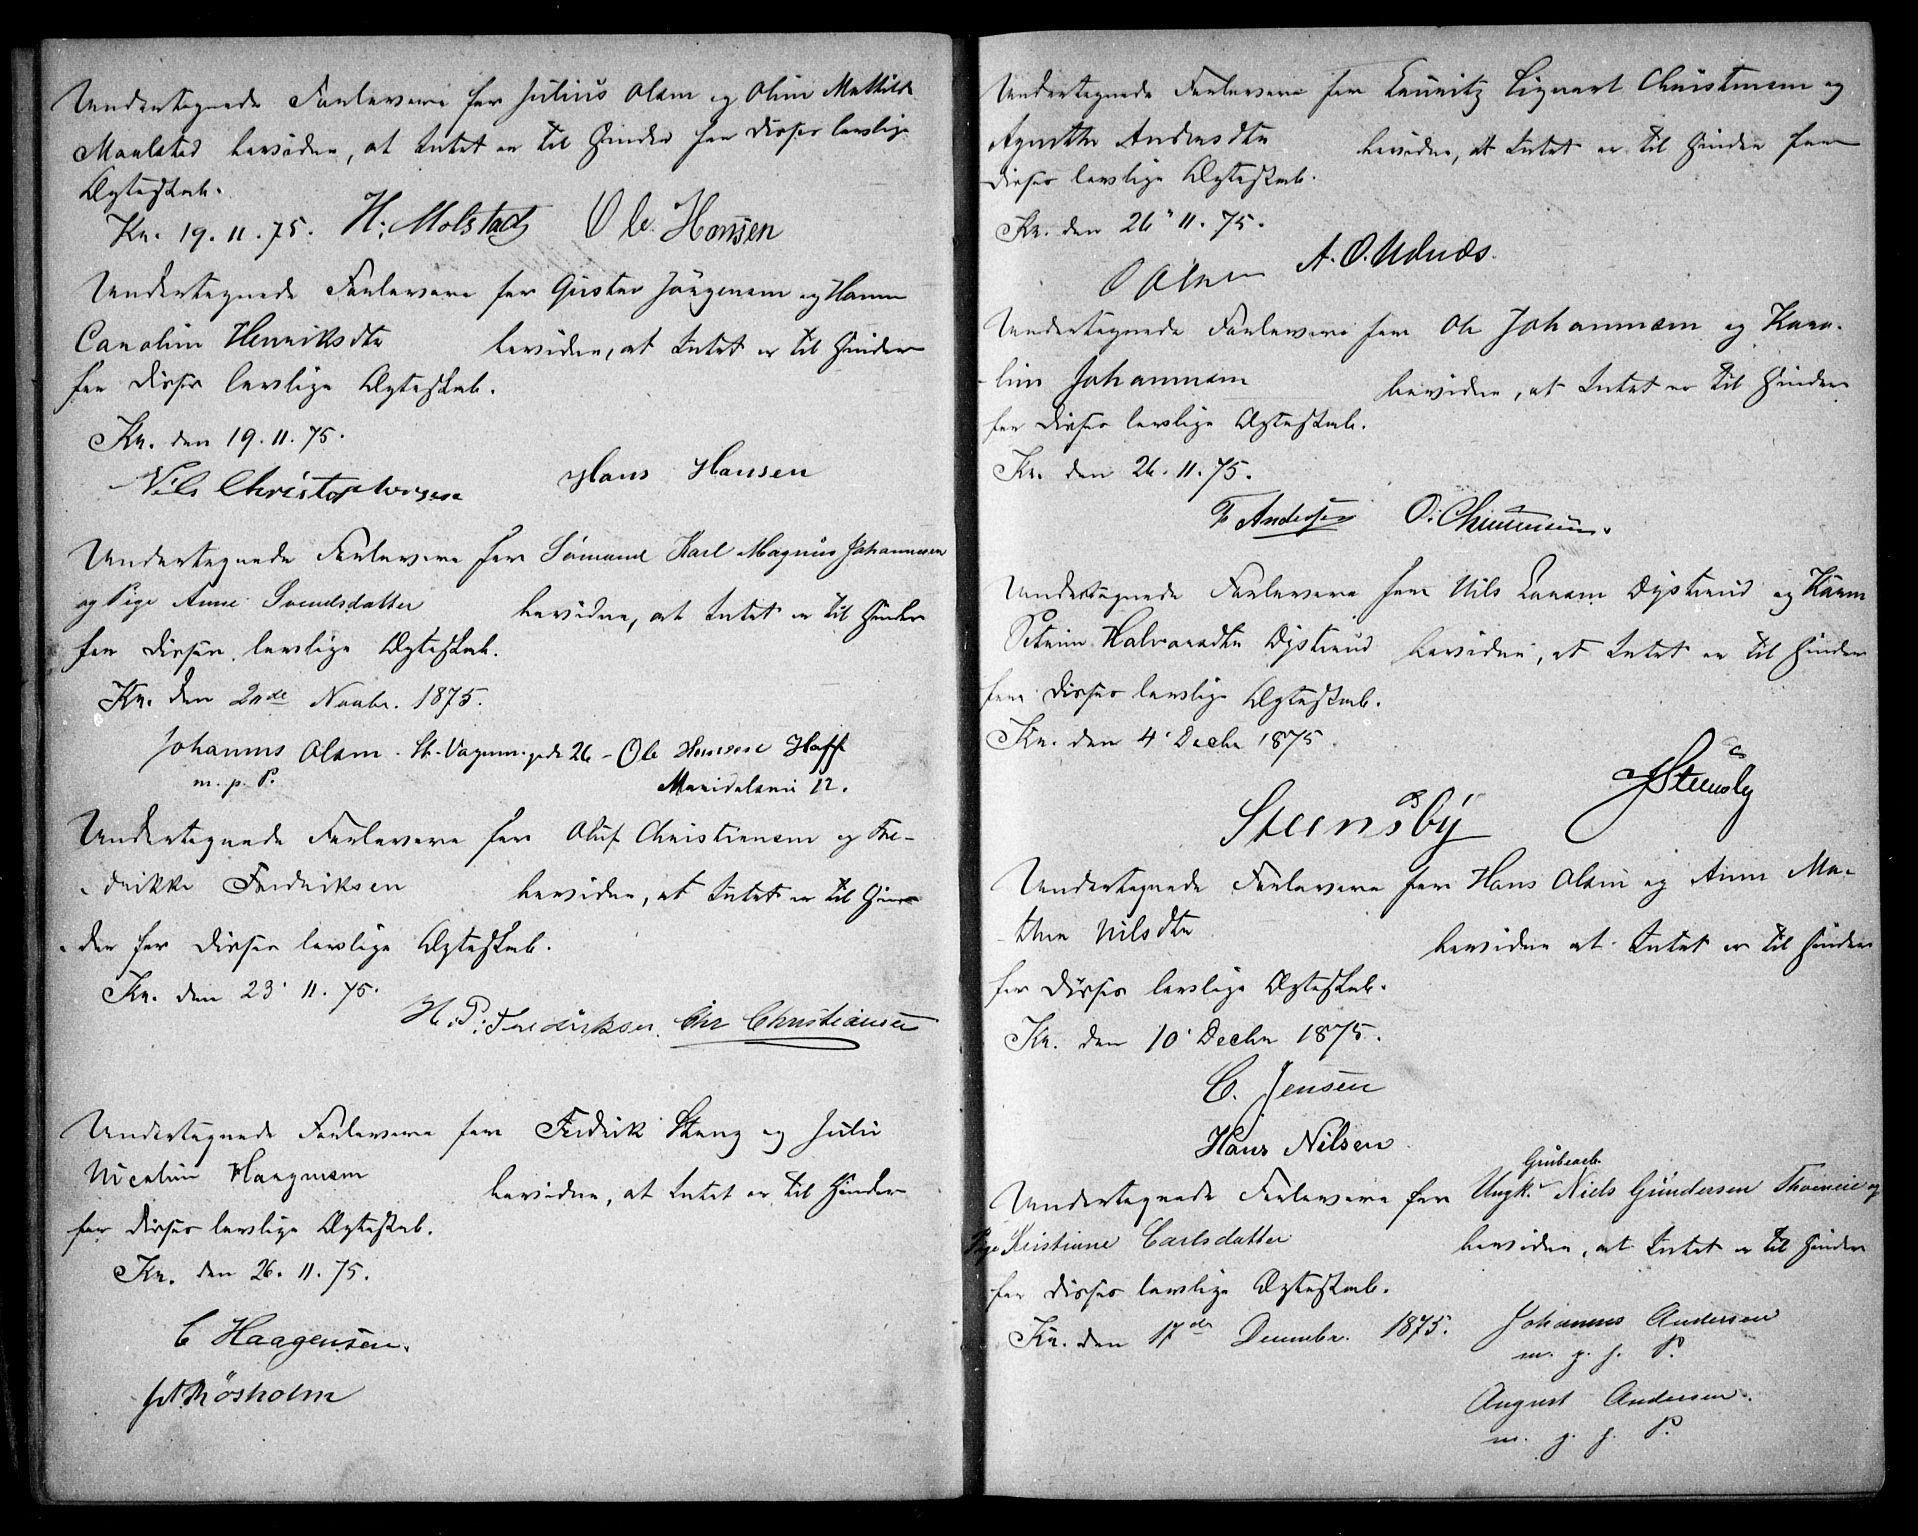 Undertegnede Forlovere for Julius Olsen og Oline Mathilde
Maalstad bevidne, at Intet er til Hinder for disses lovlige
Ægteskab.
Kr. 19.11.75. H. Molstad Ole Hansen
Undertegnede Forlovere for Gustav Jörgensen og Hanne
Caroline Henriksdtr bevidne, at Intet er til Hinder
for disses lovlige Ægteskab.
Kr. den 19.11.75.
Nils Christophersen Hans Hansen
Undertegnede Forlovere for Sømand Karl Magnus Johannesen
og Pige Anne Svendsdatter bevidne, at Intet er til Hinder
for disses lovlige Ægteskab.
Kr. den 20de Novbr. 1875.
Johannes Olsen. St. gade 26 - Ole Hansen Haff
m. p. P. Maridalsvei 12.
Undertegnede Forlovere for Oluf Christiansen og Fre-
drikke Fredriksen bevidne, at Intet er til Hin-
der for disses lovlige Ægteskab.
Kr. den 23' 11. 75.
H. P. Frederiksen. Chr Christiansen
Undertegnede Forlovere for Fredrik Stang og Julie
Nicoline Haagensen bevidne, at Intet er til Hinder
for disses lovlige Ægteskab.
Kr. den 26. 11. 75.
C Haagensen.
Røsholm
Undertegnede Forlovere for Christensen og
Agnethe Andersdtr bevidne, at Intet er til Hinder for
disses lovlige Ægteskab.
Kr. den 26' 11. 75.
O Olsen A. O. Udnæs.
Undertegnede Forlovere for Ole Johannesen og Karo-
line Johannesen bevidne, at Intet er til Hinder
for disses lovlige Ægteskab.
Kr. den 26. 11. 75.
F Andersen O. Christensen.
Undertegnede Forlovere for Nils Larsen Dystrud og Karen
Petrine Halvorsdtr Dystrud bevidne, at Intet er til Hinder
for disses lovlige Ægteskab.
Kr. den 4' Decbr 1875.
Steensby Steensby
Undertegnede Forlovere for Hans Olsen og Anne Ma-
thea Nilsdtr bevidne at Intet er til Hinder
for disses lovlige Ægteskab.
Kr. den 10' Decbr 1875.
C. Jensen
Hans Nilsen
Grubearb.
Undertegnede Forlovere for Ungk. Niels Gundersen og
Pige Kristiane Carlsdatter bevidne, at Intet er til Hinder
for disses lovlige Ægteskab.
Kr. den 17de Decembr. 1875. Johannes Andersen
m. p. P.
August Andersen.
m. p. P.